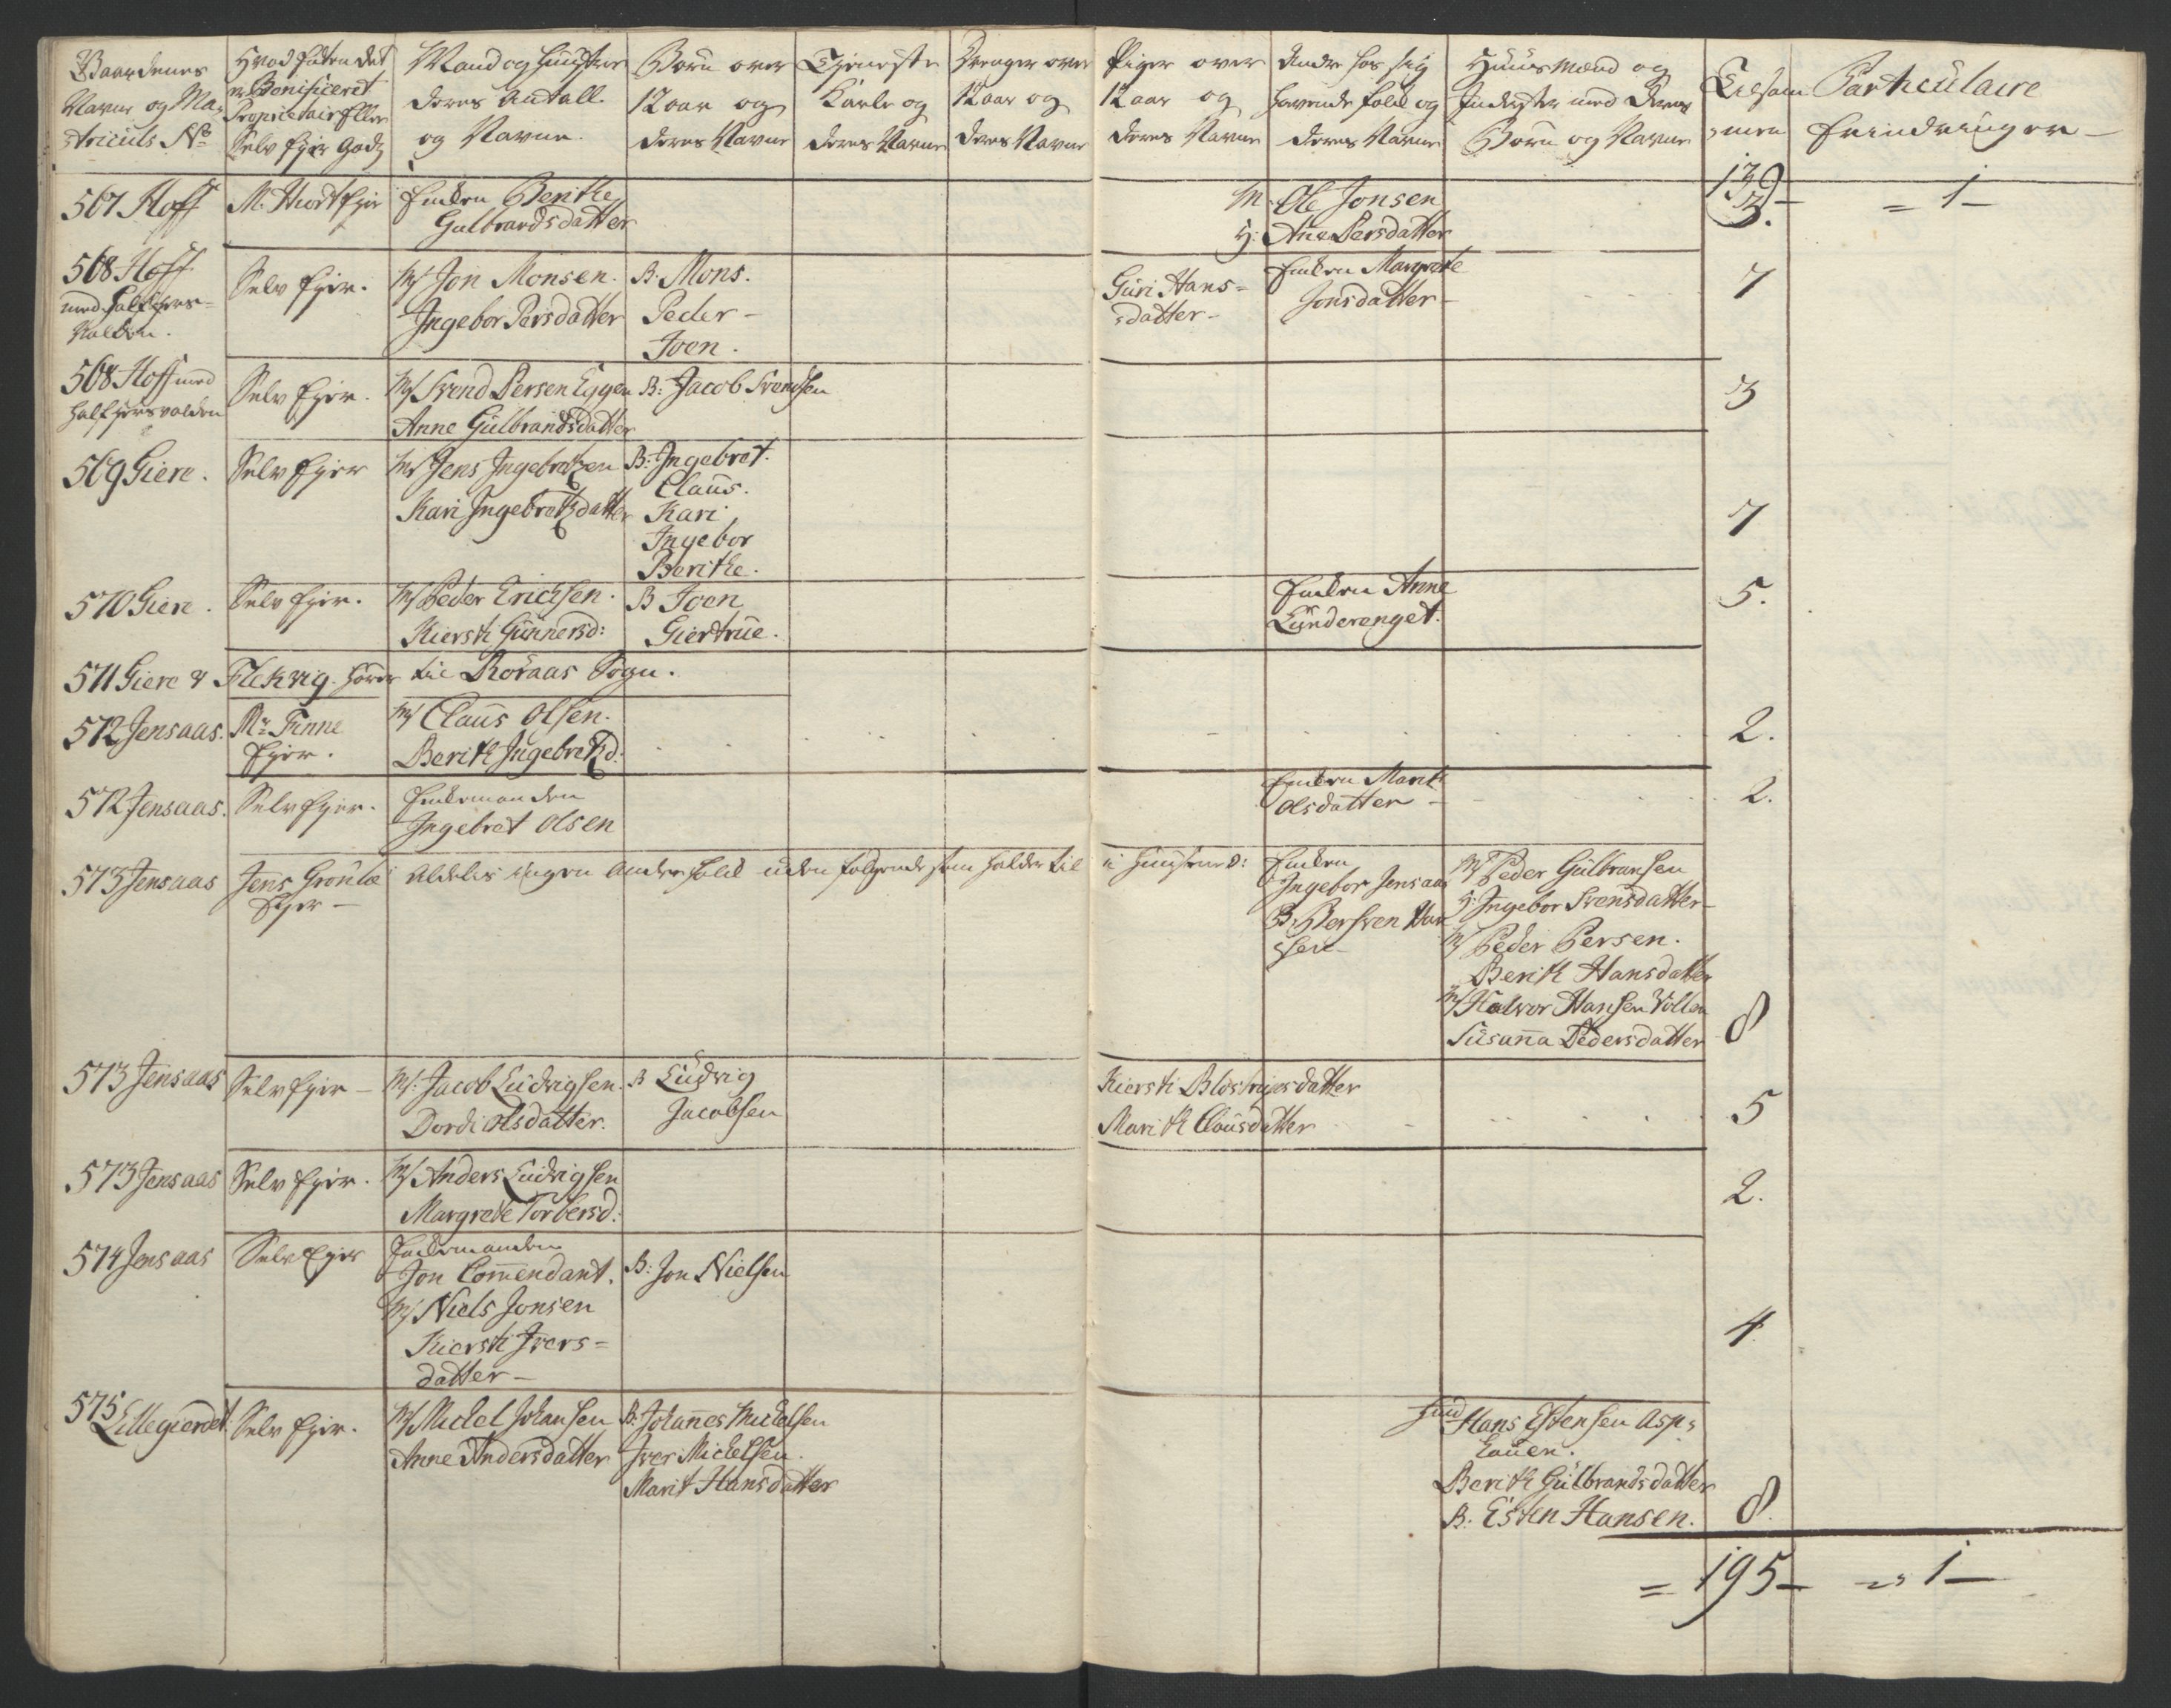 Gaardenes
Navne og Ma-
triculs No
Hvad heller det
er Beneficeret
Proprietair Eller
Selv Ejer Godz
Mand og Hustrue
deres Antall
og Navne.
Børn over
12 aar og
deres Navne
Tjeneste
Karle og
deres Navne
Drenger over
12 aar og
deres Navne
Piger over
12 aar og
deres Navne
Andre hos sig
havende folk og
deres Navne
Huusmænd og
Inderster med deres
Børn og Navne
Tilsam-
men
Particulaire
Erindringer -
139 -
= 1 -
567 Hoff
M. Hiort Ejer
Enken Berithe
Gulbrandsdatter
M. Ole Jonsen
H: Ane Persdatter
3.
568 Hoff
med Halfhers-
volden.
Selv Ejer.
M Jon Monsen.
Ingebor Persdatter
B. Mons.
Peder -
Joen.
Guri Hans-
datter -
Enken Margrete
Jonsdatter -
7
568 Hoff med
halfhersvolden
Selv Ejer.
M Svend Persen Eggen
Anne Gulbrandsdatter
B: Jacob Svendsen
3
569 Giere.
Selv Ejer
M Jens Ingebretzen
Kari Ingebretzdatter
B: Ingebret.
Claus.
Kari
Ingebor
Berithe.
7
570 Giere.
Selv Ejer.
M Peder Erichsen.
Kiersti Gunnersd:
B Joen
Giertrue.
Enken Anne
Lunderenget.
5.
571 Giere & Flekvig hører til Røraas Sogn.
572 Jensaas.
Mr Finne
Ejer.
M Claus Olsen.
Berith Ingebretzd:
2.
572 Jensaas.
Selv Ejer.
Enkemanden
Ingebret Olsen
Enken Marit
Olsdatter -
2.
573 Jensaas
Jens Grønlie
Ejer -
Aldeles ingen Andre folk uden følgende som holder til
i
Enken
Ingebor Jensaas
B. Bersven Han-
sen -
M Peder Gulbransen
H: Ingebor Svensdatter -
M Peder Persen.
Berith Hansdatter
M Halvor Hansen Vollen
Susanna Pedersdatter
8
573 Jensaas
Selv Ejer -
M: Jacob Ludvigsen.
Dordi Olsdatter.
B Ludvig
Jacobsen
Kiersti
Marith Clausdatter
5
573 Jensaas
Selv Ejer.
M Anders Ludvigsen
Margrete Torbersd:
2.
574 Jensaas
Selv Ejer
Enkemanden
Jon Com̄endant.
M Niels Jonsen
Kiersti Ivers-
datter -
B: Jon Nielsen
4
575 Lillegierdet.
Selv Ejer.
M Mickel Johansen
Anne Andersdatter
B. Johan̄es Mickelsen
Iver Mickelsen.
Marit Hansdatter
Huusmd Hans Estensen Asp-
Berith Gulbrandsdatter
B. Esten Hansen.
8.
= 195 -
= 1 -